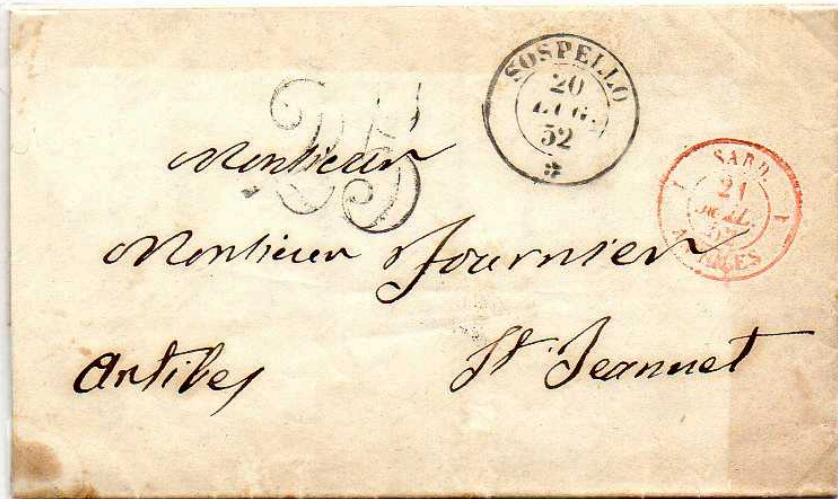 SOSPELLO
20
LUG.
52
25
SARD.
21
JUIL.
52
ANTIBES
1 1
Monsieur
Monsieur Fournier
Antibes St Jeannet